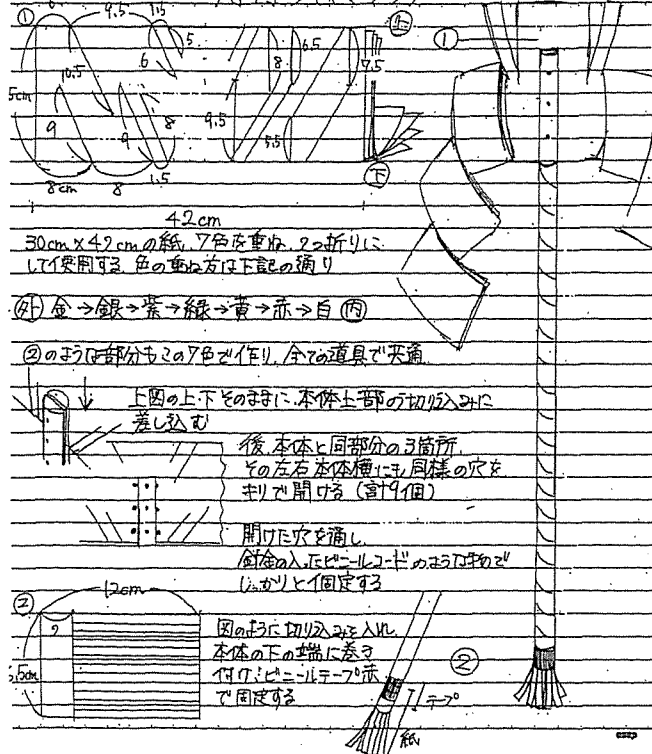 ①
9.5
1.5
5
6
10.5
9
9
8
8cm
8
1.5
8
6.5
9.5
5.5
7.5
上
下
①
42cm
30cm×42cmの紙、7色を重ね、2つ折りに
して使用する。色の重ね方は下記の通り
外 金→銀→紫→緑→黄→赤→白 内
②のような部分もこの7色で作り、全ての道具で共通
上図の上、下そのままに、本体上部の切り込みに
差し込む
後、本体と同部分の3箇所、
その左右本体横にも同様の穴を
キリで開ける(計9個)
開けた穴を通し、
針金の入ったビニールコードのような物で
しっかりと固定する
②
12cm
2
5.5cm
図のように切り込みを入れ、
本体の下の端に巻き
付け、ビニールテープ赤
で固定する
②
テープ
紙